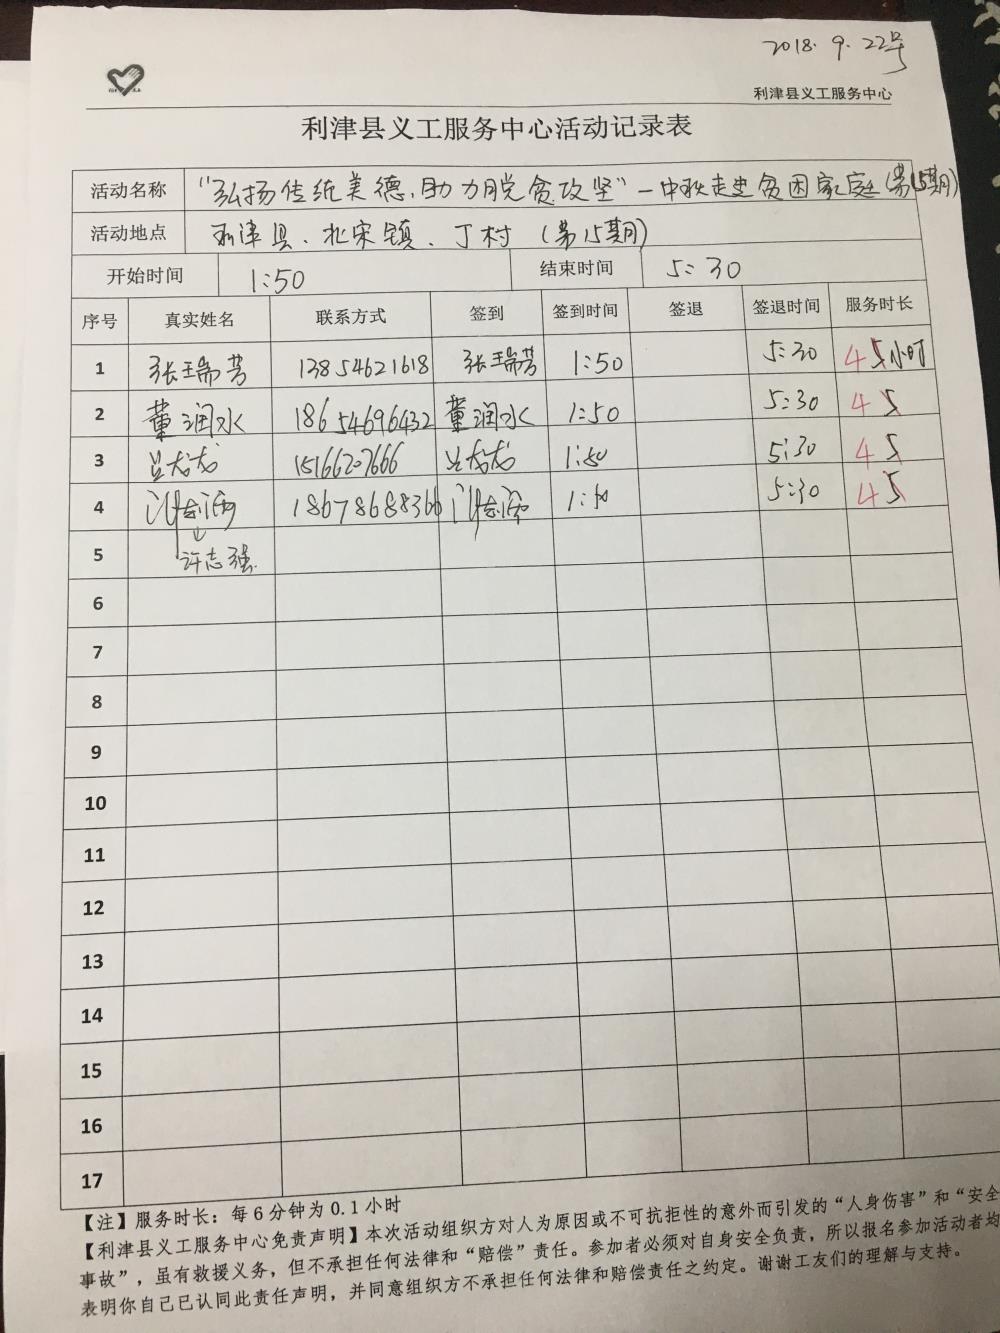 2018.9.22号
利津县义工服务中心
利津县义工服务中心活动记录表
活动名称 “弘扬传统美德,助力脱贫攻坚”—中秋走进贫困家庭(第15期)
活动地点 利津县、北宋镇、丁村(第15期)
开始时间 1:50 结束时间 5:30
序号 真实姓名 联系方式 签到 签到时间 签退 签退时间 服务时长
1 张瑞芳 13854621618 张瑞芳 1:50 5:30 4 5小时
2 董润水 18654696432 董润水 1:50 5:30 4 5
3 吕龙龙 15166207666 吕龙龙 1:50 5:30 4 5
4 18678688366 1:50 5:30 4 5
5 许志强
6
7
8
9
10
11
12
13
14
15
16
17
【注】服务时长:每6分钟为0.1小时
【利津县义工服务中心免责声明】本次活动组织方对人为原因或不可抗拒性的意外而引发的“人身伤害”和“安全
事故”,虽有救援义务,但不承担任何法律和“赔偿”责任。参加者必须对自身安全负责,所以报名参加活动者均
表明你自己已认同此责任声明,并同意组织方不承担任何法律和赔偿责任之约定。谢谢工友们的理解与支持。